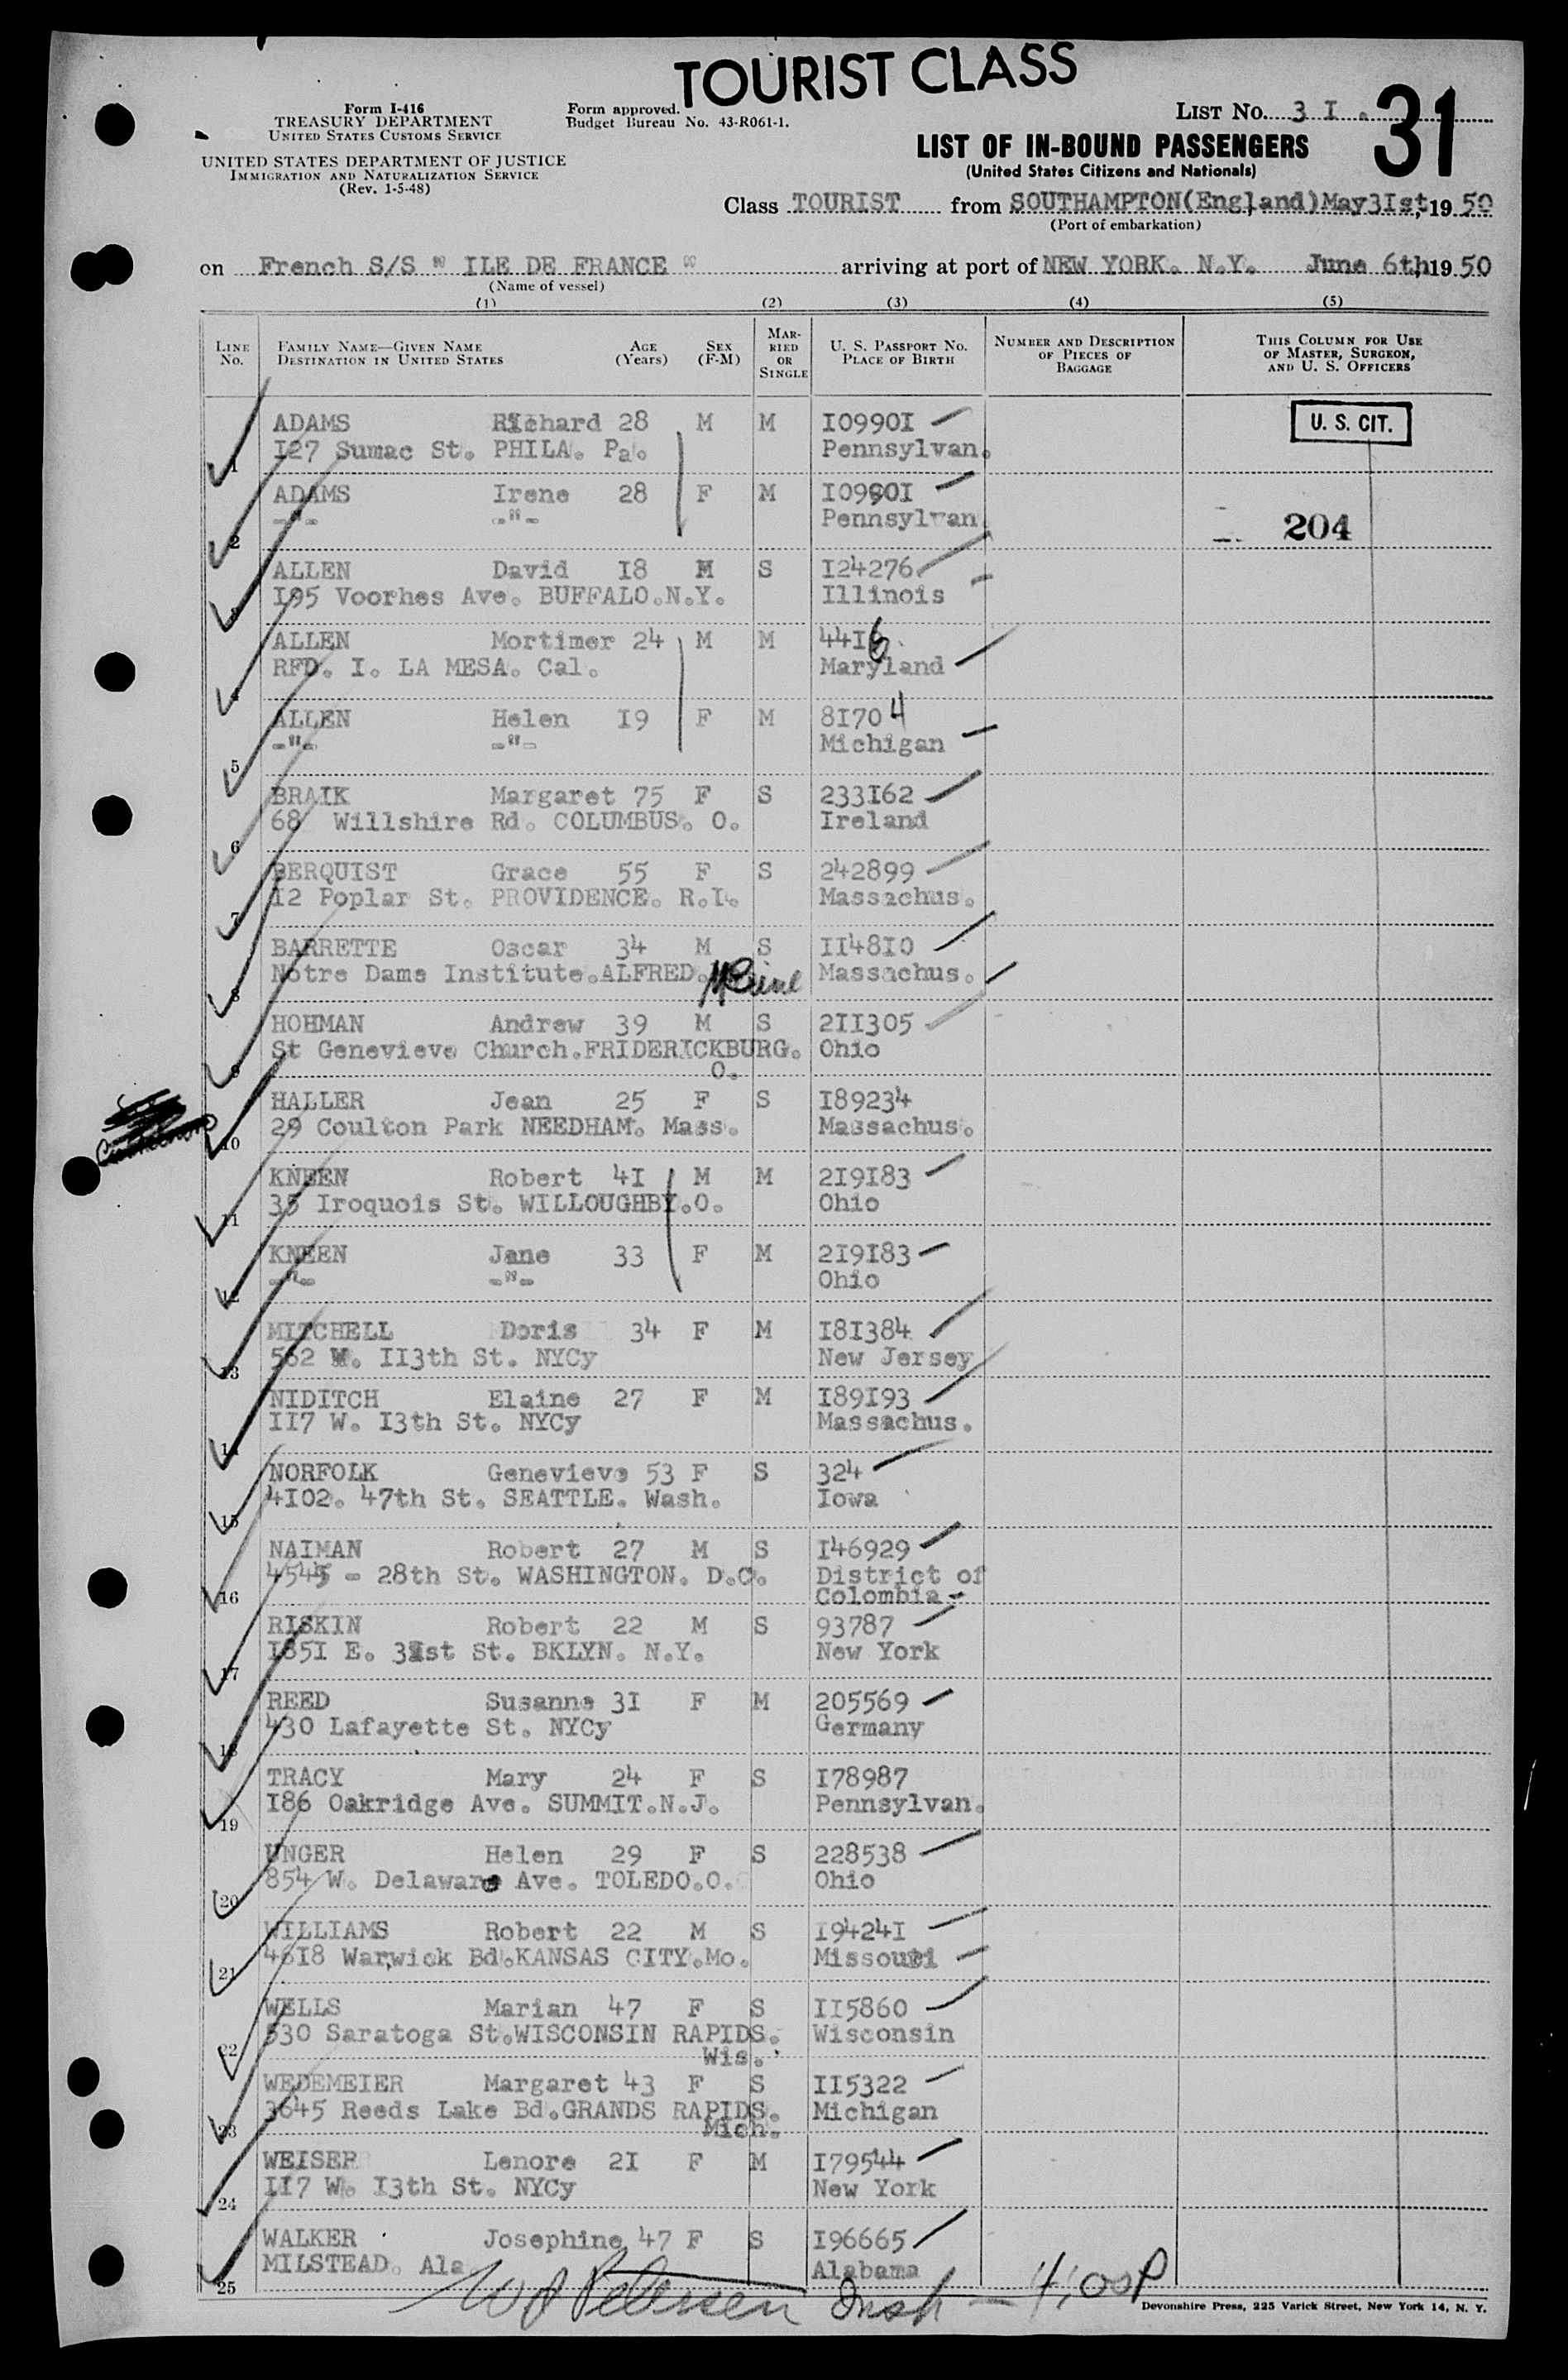 TOURIST CLASS
Form I-416
TREASURY DEPARTMENT
UNITED STATES CUSTOMS SERVICE
UNITED STATES DEPARTMENT OF JUSTICE
IMMIGRATION AND NATURALIZATION SERVICE
(Rev. 1-5-48)
Form approved.
Budget Bureau No. 43-R061-1.
LIST No. 3 I . 31
LIST OF IN-BOUND PASSENGERS
(United States Citizens and Nationals)
Class TOURIST from SOUTHAMPTON(England)May3Ist,1950
(Port of embarkation)
on French S/S " ILE DE FRANCE " arriving at port of NEW YORK. N.Y. June 6th,1950
(Name of vessel)
(1) (2) (3) (4) (5)
LINE No. FAMILY NAME—GIVEN NAME DESTINATION IN UNITED STATES AGE (Years) SEX (F-M) MARRIED OR SINGLE U. S. PASSPORT NO. PLACE OF BIRTH NUMBER AND DESCRIPTION OF PIECES OF BAGGAGE THIS COLUMN FOR USE OF MASTER, SURGEON, AND U. S. OFFICERS
ADAMS Richard 28 M M I0990I U. S. CIT.
1 I27 Sumac St. PHILA. Pa. Pennsylvan.
ADAMS Irene 28 F M I0990I
2 -"- -"- Pennsylvan 204
ALLEN David I8 M S I24276
3 I95 Voorhes Ave. BUFFALO.N.Y. Illinois
ALLEN Mortimer 24 M M 44I6
4 RFD. I. LA MESA. Cal. Maryland
ALLEN Helen I9 F M 8I704
5 -"- -"- Michigan
BRAIK Margaret 75 F S 233I62
6 68 Willshire Rd. COLUMBUS. O. Ireland
BERQUIST Grace 55 F S 242899
7 I2 Poplar St. PROVIDENCE. R.I. Massachus.
BARRETTE Oscar 34 M S II48I0
8 Notre Dame Institute.ALFRED. Maine Massachus.
HOHMAN Andrew 39 M S 2II305
9 St Genevieve Church.FRIDERICKBURG. Ohio
O.
HALLER Jean 25 F S I89234
10 29 Coulton Park NEEDHAM. Mass. Massachus.
KNEEN Robert 4I M M 2I9I83
11 35 Iroquois St. WILLOUGHBY.O. Ohio
KNEEN Jane 33 F M 2I9I83
12 -"- -"- Ohio
MITCHELL Doris 34 F M I8I384
13 562 W. II3th St. NYCy New Jersey
NIDITCH Elaine 27 F M I89I93
14 II7 W. I3th St. NYCy Massachus.
NORFOLK Genevieve 53 F S 324
15 4I02. 47th St. SEATTLE. Wash. Iowa
NAIMAN Robert 27 M S I46929
16 4545 - 28th St. WASHINGTON. D.C. District of
Colombia
RISKIN Robert 22 M S 93787
17 I85I E. 3Ist St. BKLYN. N.Y. New York
REED Susanne 3I F M 205569
18 430 Lafayette St. NYCy Germany
TRACY Mary 24 F S I78987
19 I86 Oakridge Ave. SUMMIT.N.J. Pennsylvan.
UNGER Helen 29 F S 228538
20 854 W. Delaware Ave. TOLEDO.O. Ohio
WILLIAMS Robert 22 M S I9424I
21 46I8 Warwick Bd.KANSAS CITY.Mo. Missouri
WELLS Marian 47 F S II5860
22 530 Saratoga St.WISCONSIN RAPIDS. Wisconsin
Wis.
WEDEMEIER Margaret 43 F S II5322
23 3645 Reeds Lake Bd.GRANDS RAPIDS. Michigan
Mich.
WEISER Lenore 2I F M I79544
24 II7 W. I3th St. NYCy New York
WALKER Josephine 47 F S I96665
25 MILSTEAD. Ala Alabama
Petersen Insp
Devonshire Press, 225 Varick Street, New York 14, N. Y.